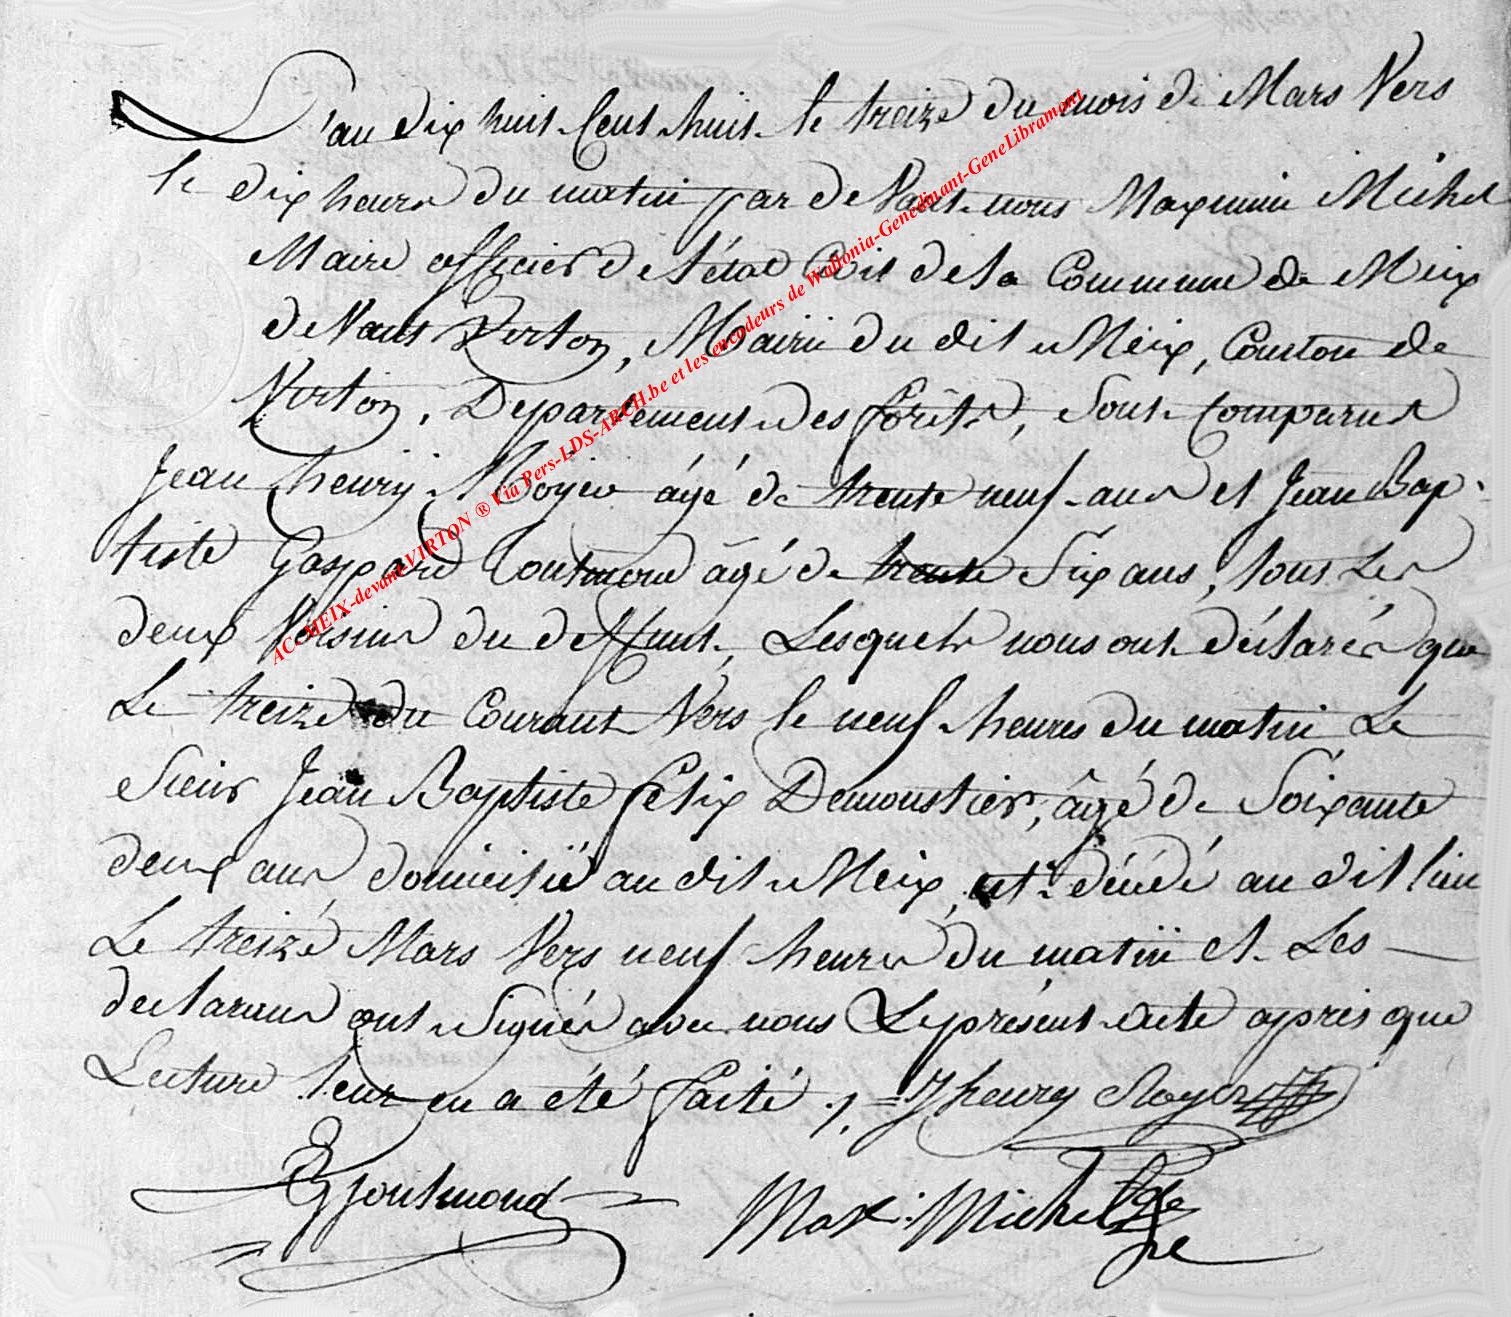 L'an dix huit Cent huit le treize du mois de Mars Vers
le dix heures du matin par deVant nous Maximin Michel
Maire officier de l'état Civil de la Commune de Meix
deVant Virton, Mairie du dit Meix, Canton de
Virton, Departement des forêts, Sont Comparus
Jean henry Royer âgé de trente neuf ans et Jean Bap-
tiste Gaspard âgé de trente Six ans, tous les
deux Voisins du deffunt, Lesquels nous ont déclarés que
Le treize du Courant Vers le neuf heures du matin Le
Sieur Jean Baptiste felix Demoustier, âgé de Soixante
deux ans domicilié au dit Meix, est décédé au dit lieu
Le treize Mars Vers neuf heures du matin et Les
declarans ont Signés avec nous Le présent acte après que
Lecture leur en a été faite ./. J henry Royer
Max. Michel
AC-MEIX-devant-VIRTON ® Via Pers-LDS-ARCH.be et les encodeurs de Wallonia-Genedinant-GeneLibramont